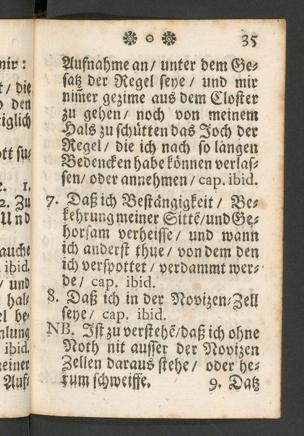 35
Aufnahme an/ unter dem Ge-
satz der Regel seye/ und mir
nim̅er gezime aus dem Closter
zu gehen/ noch von meinem
Hals zu schütten das Joch der
Regel/ die ich nach so langen
Bedencken habe können verlas-
sen/ oder annehmen/ cap. ibid.
7. Daß ich Beständigkeit/ Be-
kehrung meiner Sittē/ und Ge-
horsam verheisse/ und wann
ich anderst thue/ von dem den
ich verspottet/ verdammt wer-
de/ cap. ibid.
8. Daß ich in der Novizen-Zell
seye/ cap. ibid.
NB. Ist zu verstehē/ daß ich ohne
Noth nit ausser der Novizen
Zellen daraus stehe/ oder he-
rum schweiffe.
9. Daß
mir:
t/ die
den
iglich
ott su-
1.
2. Zu
Und
auche
ibid.
und
hal-
bel
ibid.
Auf-